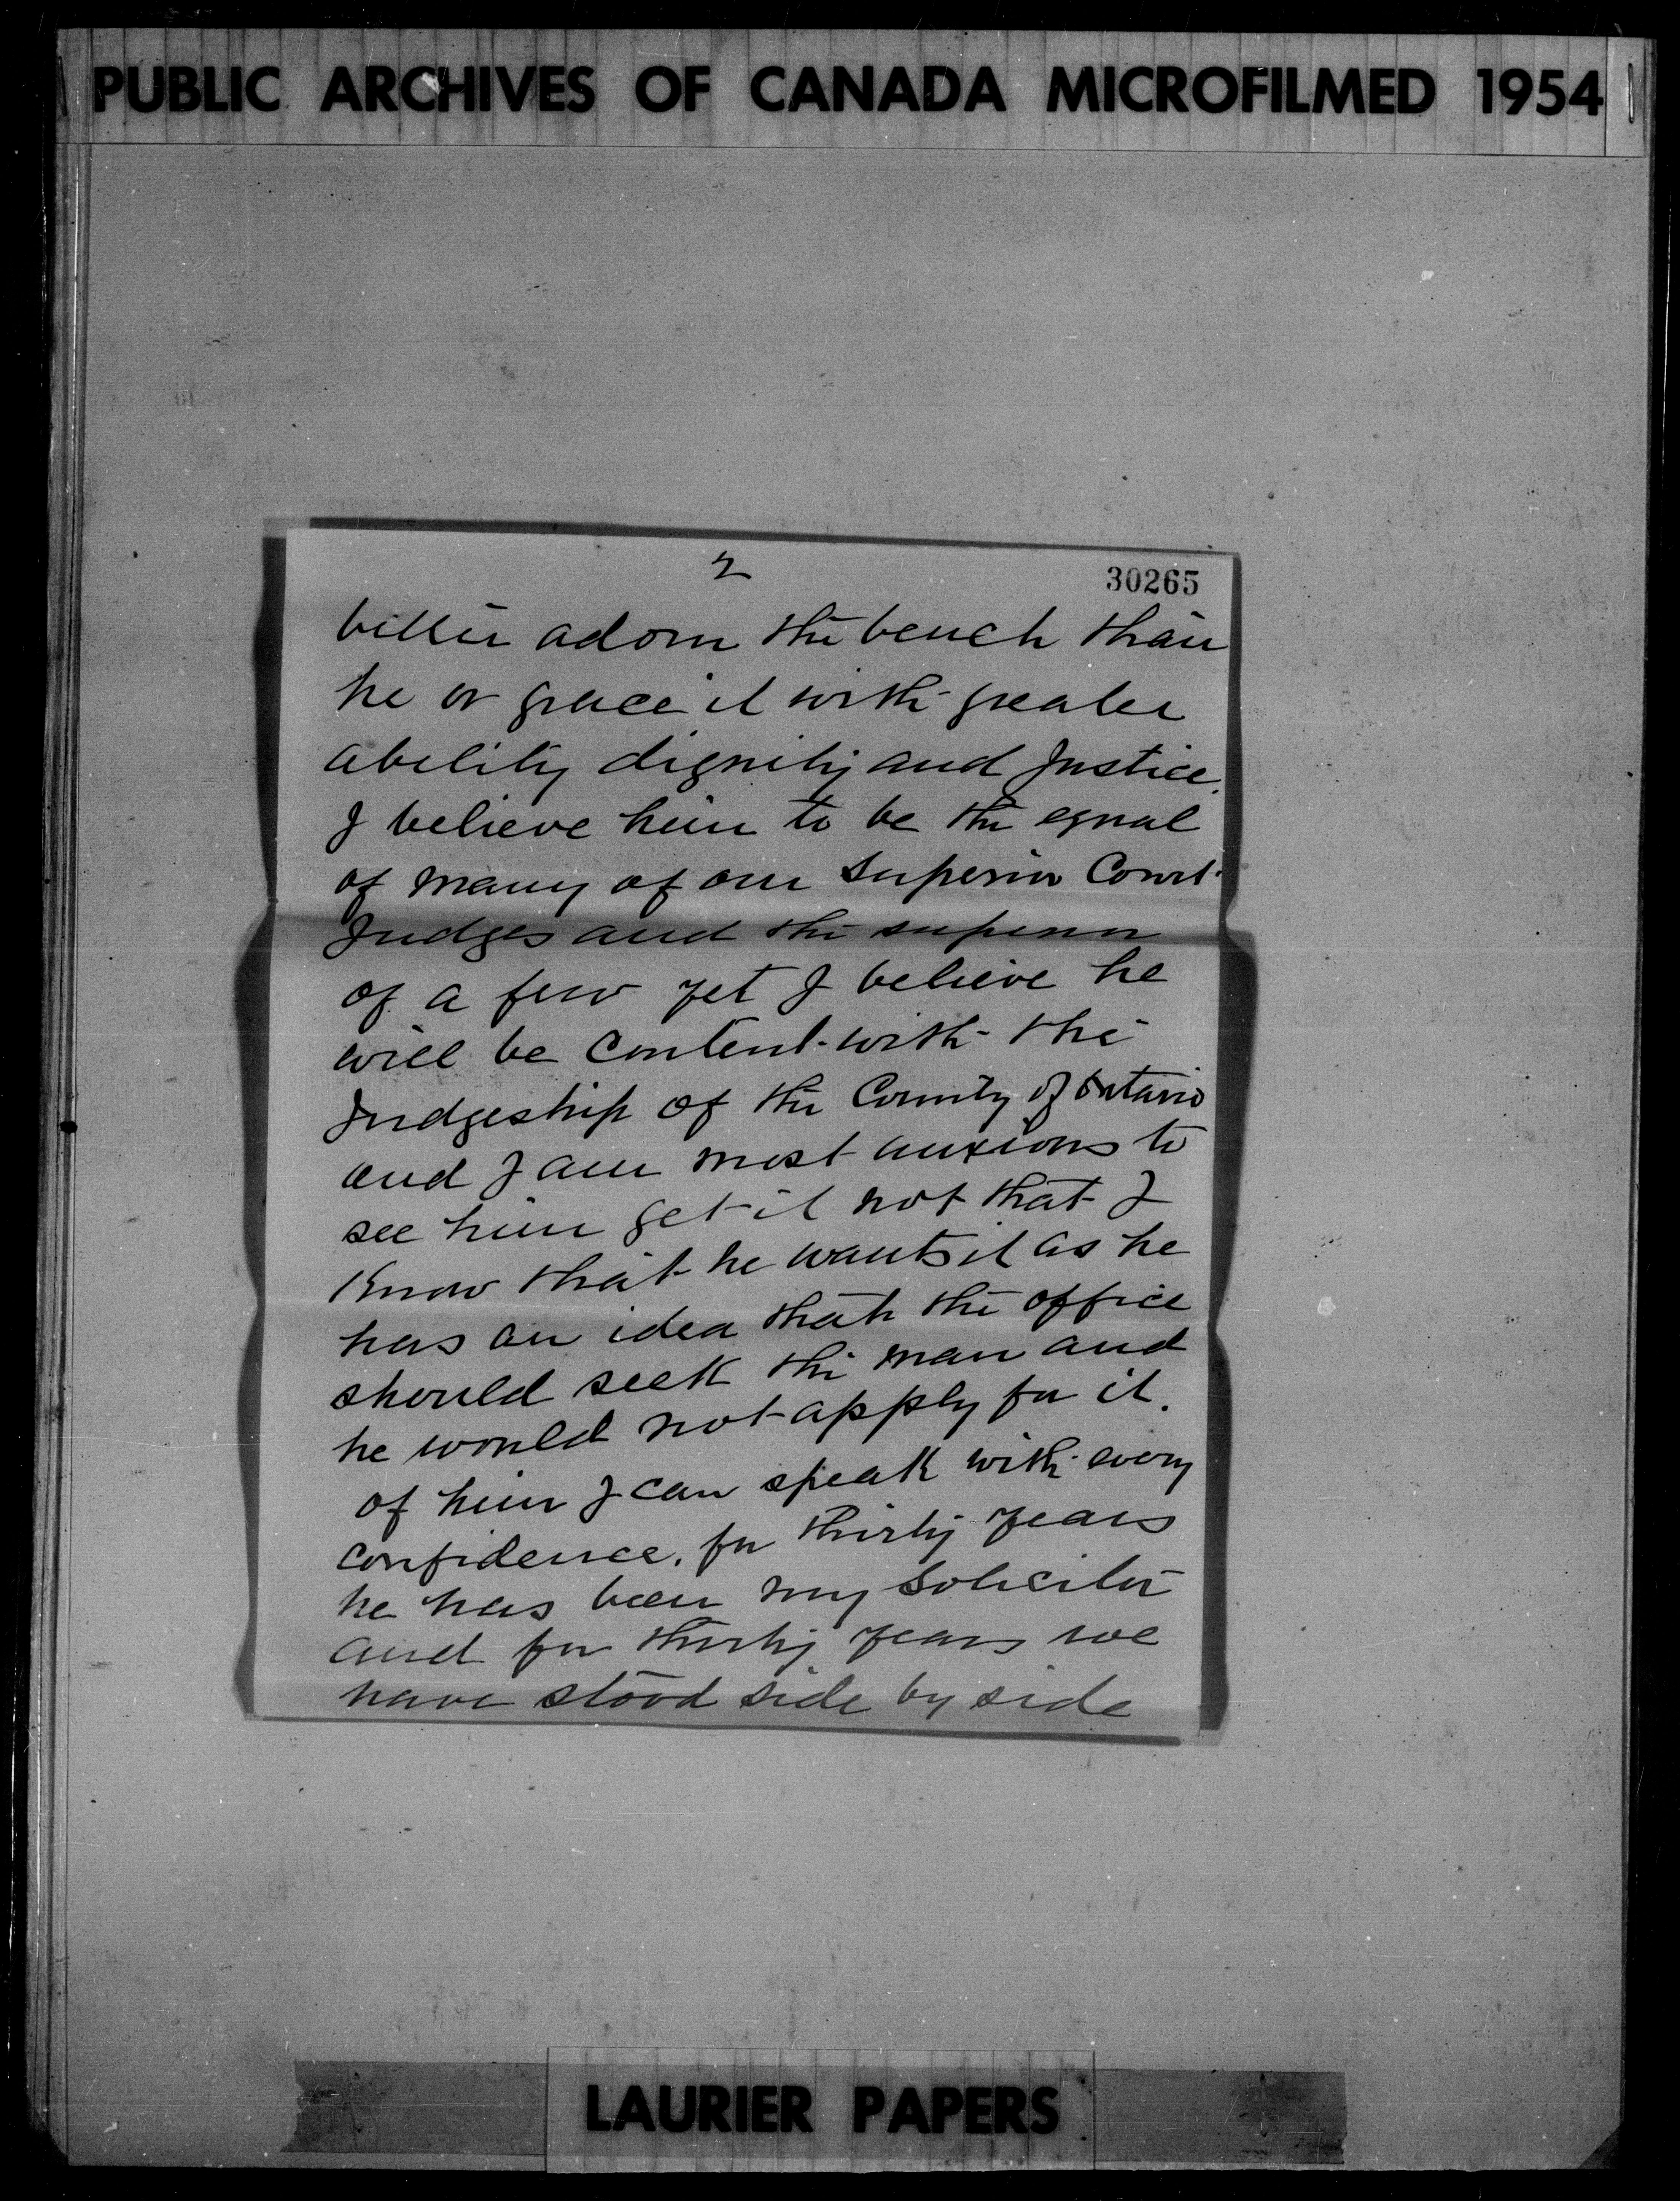 PUBLIC ARCHIVES OF CANADA MICROFILMED 1954
2
30265
better adorn the bench than
he or grace it with greater
ability dignity and Justice.
I believe him to be the equal
of many of our Superior Court
Judges and the superior
of a few yet I believe he
will be content with the
Judgeship of the County of Ontario
and I am most anxious to
see him get it not that I
know that he wants it as he
has an idea that the office
should seek the man and
he would not apply for it.
of him I can speak with every
confidence. for thirty years
he has been my Solicitor
and for thirty years we
have stood side by side
LAURIER PAPERS